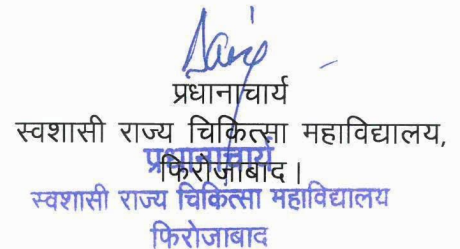 प्रधानाचार्य
स्वशासी राज्य चिकित्सा महाविद्यालय,
फिरोज़ाबाद।
प्रधानाचार्य
स्वशासी राज्य चिकित्सा महाविद्यालय
फिरोजाबाद